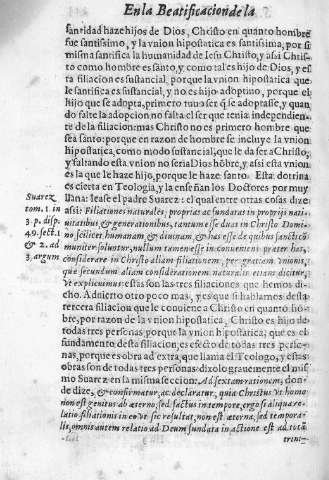 En la Beatificacion de la
santidad haze hijos de Dios, Christo en quanto hombre
fue santissimo, y la vnion hipostatica es santissima, por si
misma santifica la humanidad de Iesu Christo, y assi Christo
como hombre es santo, y como tal es hijo de Dios, y es-
ta filiacion es sustancial, porque la vnion hipostatica que
le santifica es sustancial, y no es hijo adoptiuo, porque el
hijo que se adopta, primero tuuo ser q̃ se adoptasse, y quan
do falte la adopcion no falta el ser que tenia independien-
te de la filiacion: mas Christo no es primero hombre que
sea santo: porque en razon de hombre se incluye la vnion
hipostatica, como modo sustancial, que le da ser a Christo,
y faltando esta vnion no seria Dios hõbre, y assi esta vnion
es la que le haze hijo, porque le haze santo. Esta dotrina
es cierta en Teologia, y la enseñan los Doctores por muy
llana: lease el padre Suarez: el qual entre otras cosas dize
Suarez
tom. 1. in
3. p. disp.
49. sect. 1
& 2. ad
3. argum
assi: Filiationes naturales, proprias ac fundatas in proprijs nati-
uitatibus, & generationibus, tantum esse duas in Christo Domi-
no, scilicet humanam, & diuinam, & has esse de quibus sancti cõ-
muniter loquntur, nullum tamen esse inconueniens præter has,
considerare in Christo aliam filiationem, per gratiam vnionis,
quæ secundum aliam considerationem naturalis etiam dicitur,
vt explicuimus: estas son las tres filiaciones que hemos di-
cho. Aduierto otro poco mas, y es que si hablamos desta
tercera filiacion que le conuiene a Christo en quanto hom
bre, por razon de la vnion hipostatica, Christo es hijo de
todas tres personas, porque la vnion hipostatica, que es el
fundamento desta filiacion, es efecto de todas tres perso-
nas, porque es obra ad extra, que llama el Teologo, y estas
obras son de todas tres personas: dixolo grauemente el mis
mo Suarez en la misma seccion: Ad sextam rationem, don-
de dize, & confirmatur, ac declaratur, quia Christus vt homo
non est genitus ab æterno, sed factus in tempore, ergo si aliqua re-
latio filiationis in eo vt sic resultat, non est æterna, sed tempora-
lis, omnis autem relatio ad Deum fundata in actione est ad totã
trini-